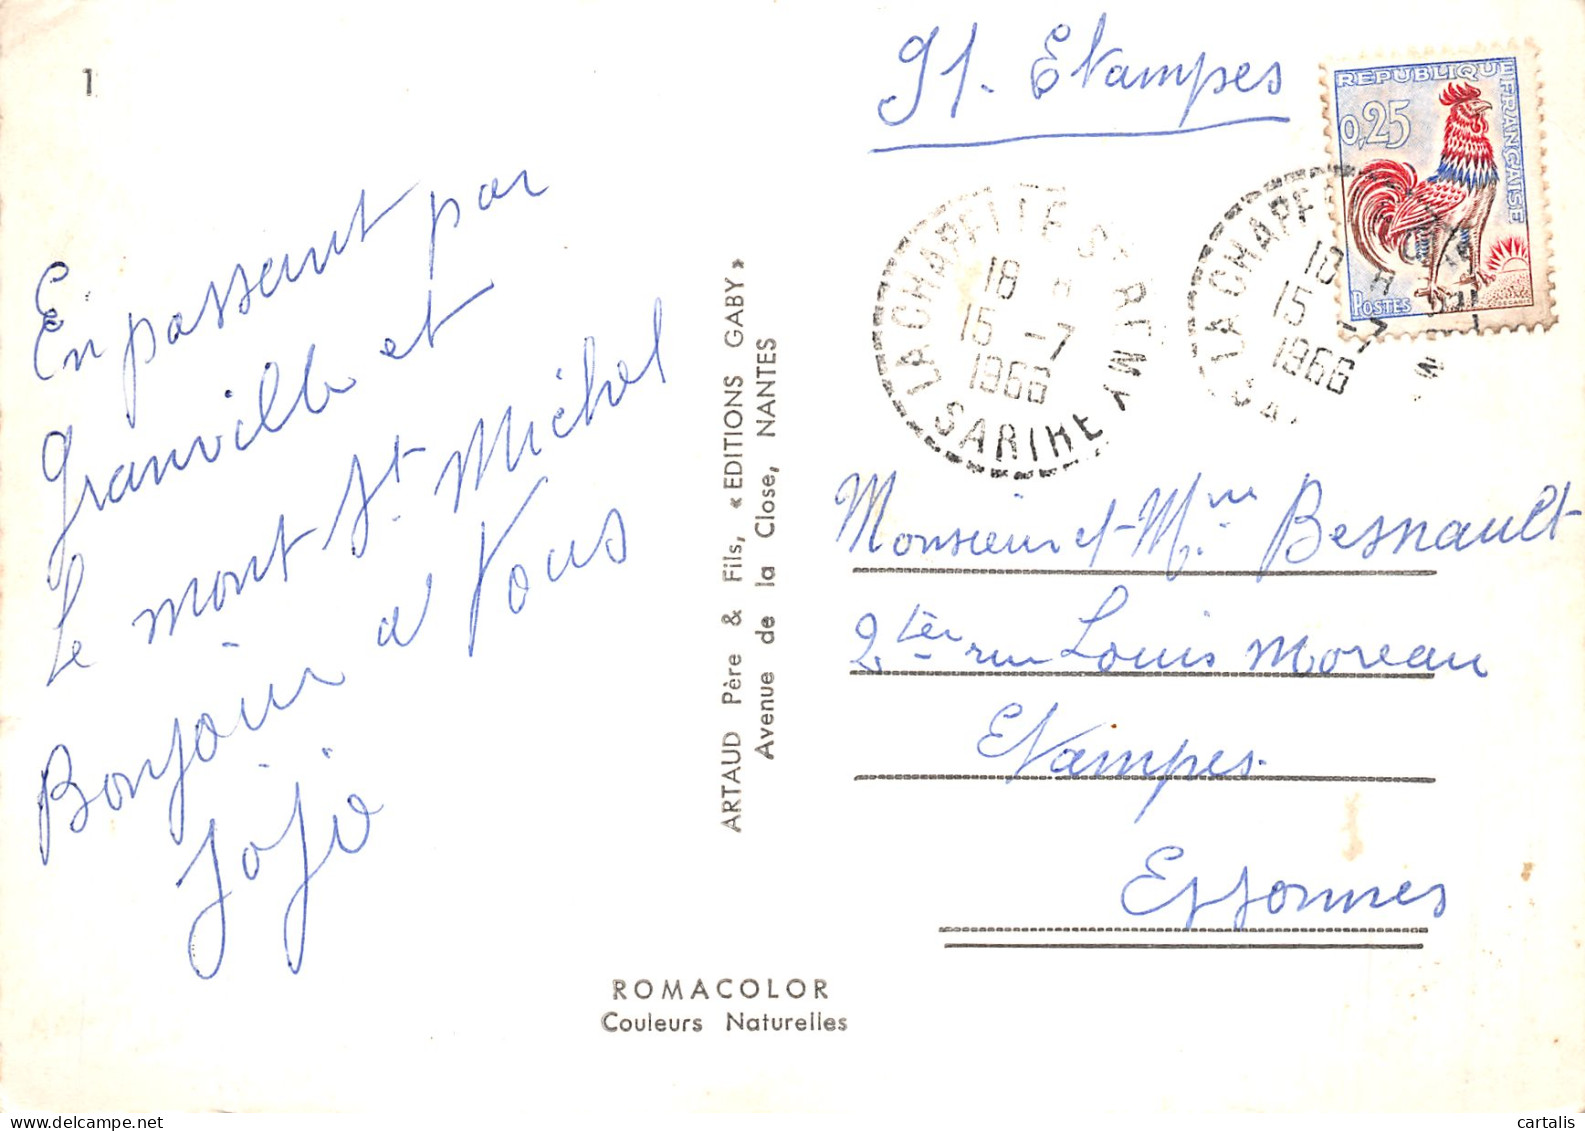 1
91. Etampes
REPUBLIQUE FRANÇAISE
0,25
POSTES
LA CHAPELLE St REMY
18 H
15 -7
1966
SARTHE
LA CHAPE
18 H
15 -7
1966
En passant par
Granville et
Le mont St Michel
Bonjour à Vous
Jojo
ARTAUD Père & Fils, « EDITIONS GABY »
Avenue de la Close, NANTES
Monsieur et Mme Besnault
2 ter rue Louis Moreau
Etampes.
Essonnes
ROMACOLOR
Couleurs Naturelles
cartalis